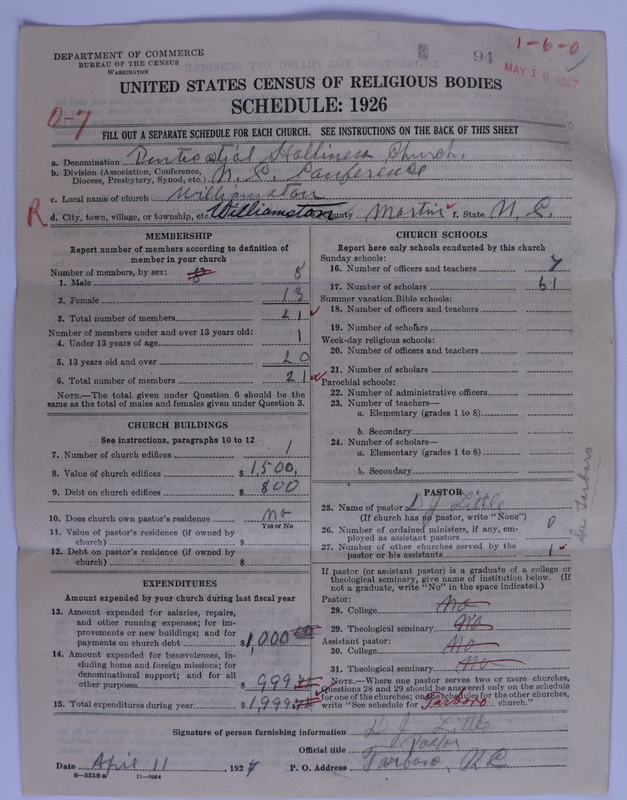 1-6-0
94
MAY 10 1927
DEPARTMENT OF COMMERCE
BUREAU OF THE CENSUS
WASHINGTON
UNITED STATES CENSUS OF RELIGIOUS BODIES
SCHEDULE: 1926
0-7
FILL OUT A SEPARATE SCHEDULE FOR EACH CHURCH. SEE INSTRUCTIONS ON THE BACK OF THIS SHEET
a. Denomination Penticostal Holliness Church.
b. Division (Association, Conference, Diocese, Presbytery, Synod, etc.) N. C. Conference
c. Local name of church Williamston
R d. City, town, village, or township, etc. Williamston e. County Martin f. State N. C.
MEMBERSHIP
Report number of members according to definition of
member in your church
Number of members, by sex:
1. Male 8
2. Female 13
3. Total number of members 21
Number of members under and over 13 years old:
4. Under 13 years of age 1
5. 13 years old and over 20
6. Total number of members 21
NOTE.—The total given under Question 6 should be the
same as the total of males and females given under Question 3.
CHURCH BUILDINGS
See instructions, paragraphs 10 to 12
7. Number of church edifices 1
8. Value of church edifices $ 1,500.
9. Debt on church edifices $ 800
10. Does church own pastor's residence no
Yes or No
11. Value of pastor's residence (if owned by
church) $
12. Debt on pastor's residence (if owned by
church) $
EXPENDITURES
Amount expended by your church during last fiscal year
13. Amount expended for salaries, repairs,
and other running expenses; for im-
provements or new buildings; and for
payments on church debt $ 1,000
14. Amount expended for benevolences, in-
cluding home and foreign missions; for
denominational support; and for all
other purposes $ 999
15. Total expenditures during year $ 1,999
CHURCH SCHOOLS
Report here only schools conducted by this church
Sunday schools:
16. Number of officers and teachers 7
17. Number of scholars 61
Summer vacation Bible schools:
18. Number of officers and teachers
19. Number of scholars
Week-day religious schools:
20. Number of officers and teachers
21. Number of scholars
Parochial schools:
22. Number of administrative officers
23. Number of teachers—
a. Elementary (grades 1 to 8)
b. Secondary
24. Number of scholars—
a. Elementary (grades 1 to 8)
b. Secondary
See Tarboro
PASTOR
25. Name of pastor D J Little
(If church has no pastor, write "None")
26. Number of ordained ministers, if any, em-
ployed as assistant pastors 0
27. Number of other churches served by the
pastor or his assistants 1
If pastor (or assistant pastor) is a graduate of a college or
theological seminary, give name of institution below. (If
not a graduate, write "No" in the space indicated.)
Pastor:
28. College No
29. Theological seminary No
Assistant pastor:
30. College No
31. Theological seminary No
NOTE.—Where one pastor serves two or more churches,
Questions 28 and 29 should be answered only on the schedule
for one of the churches; on the schedules for the other churches,
write "See schedule for Tarboro church."
Signature of person furnishing information D. J. Little
Official title Pastor
Date April 11, 1927 P. O. Address Tarboro, N.C
8-5518a 11-9064